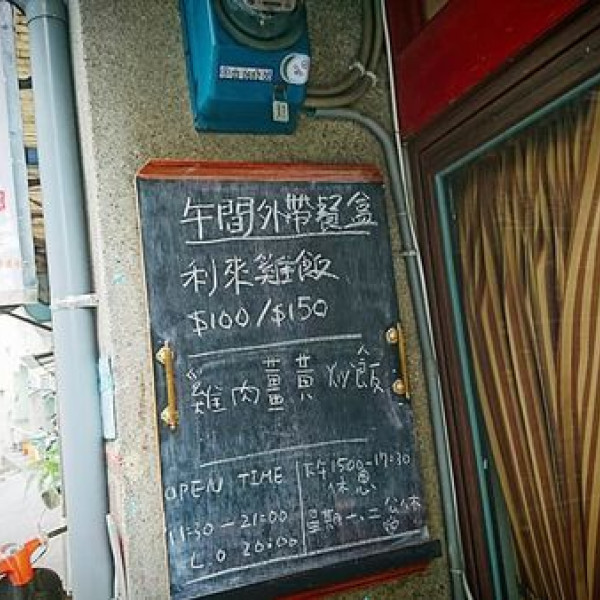 午間外帶餐盒
利來雞飯
$100/$150
雞肉薑黃炒飯
OPEN TIME
11:30-21:00
L O 20:00
下午1500-17:30
休息
星期一、二公休
11